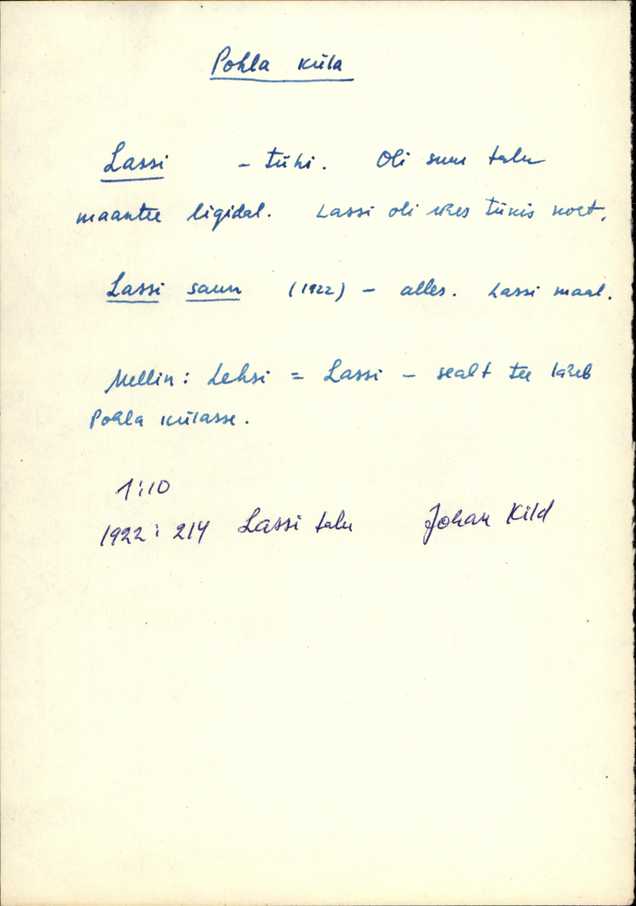 Pohla küla
Lassi - tühi. Oli suur talu
maantee ligidal. Lassi oli ühes tükis koet.
Lassi saun (1922) - alles. Lassi maal.
Mellin: Lehsi = Lassi - sealt tee läheb
Pohla külasse.
1:10
1922: 214 Lassi talu Johan Kild